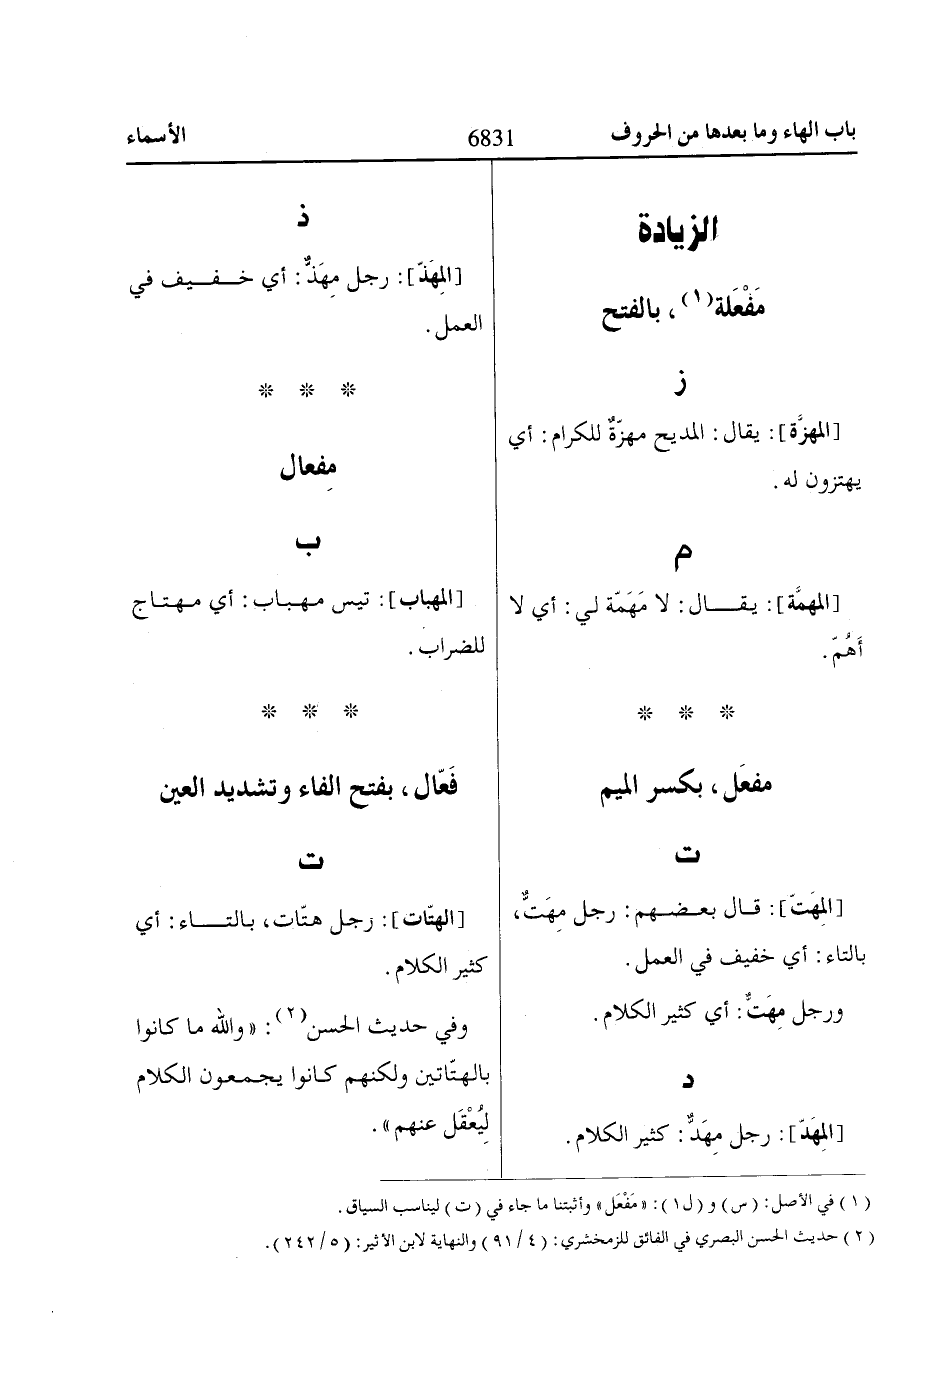 باب الهاء وما بعدها من الحروف
6831
الأسماء
الزيادة
مَفْعَلة(١)، بالفتح
ز
[المهزَّة]: يقال: المديح مهزّةٌ للكرام: أي
يهتزون له.
م
[المهمَّة]: يقـــال: لا مَهَمّة لي: أي لا
أَهُمّ.
* * *
مفعَل، بكسر الميم
ت
[المِهَتّ]: قـال بعـضـهم: رجل مِهَتٌّ،
بالتاء: أي خفيف في العمل.
ورجل مِهَتٌّ: أي كثير الكلام.
د
[المِهَدّ]: رجل مِهَدٌّ: كثير الكلام.
ذ
[المِهَذّ]: رجل مِهَذٌّ: أي خـــفـــيـــف في
العمل.
* * *
مِفعال
ب
[المهباب]: تيس مـهـباب: أي مـهـتـاج
للضراب.
* * *
فَعّال، بفتح الفاء وتشديد العين
ت
[الهتّات]: رجل هتّات، بـالتـــــاء: أي
كثير الكلام.
وفي حديث الحسن(٢): «والله ما كانوا
بالهتّاتين ولكنهم كـانوا يجـمـعـون الكلام
لِيُعْقَل عنهم».
(١) في الأصل: (س) و (ل١): «مَفْعَل» وأثبتنا ما جاء في (ت) ليناسب السياق.
(٢) حديث الحسن البصري في الفائق للزمخشري: (٤/ ٩١) والنهاية لابن الأثير: (٥/ ٢٤٢).